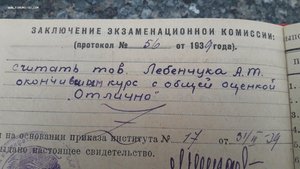 ЗАКЛЮЧЕНИЕ ЭКЗАМЕНАЦИОННОЙ КОМИССИИ:
(протокол № 56 от 1939 года).
считать тов. Лебенчука А.М.
окончившим курс с общей оценкой
„Отлично“
на основании приказа института № 17 от
выдано настоящее свидетельство.